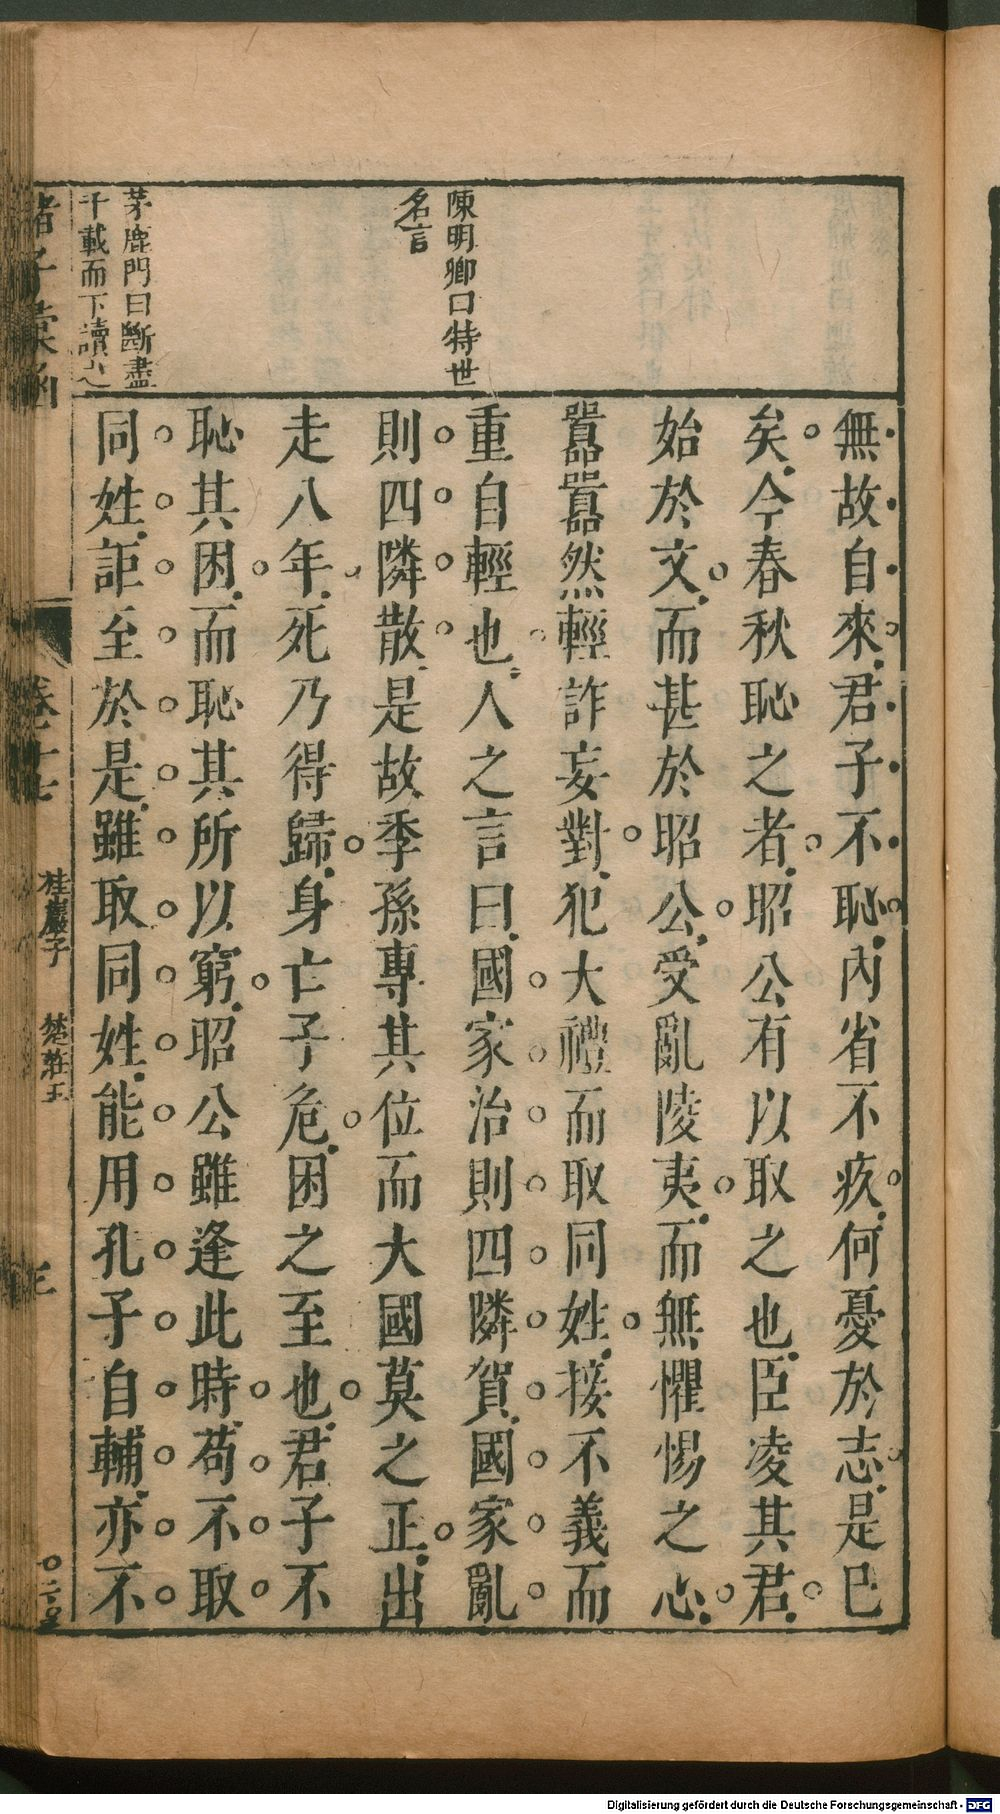 陳明卿曰特世
名言
茅鹿門曰斷盡
千載而下讀之
無故自來君子不恥內省不疚何憂於志是已
矣今春秋恥之者昭公有以取之也臣凌其君
始於文而甚於昭公受亂陵夷而無懼惕之心
囂囂然輕詐妄對犯大禮而取同姓接不義而
重自輕也人之言曰國家治則四隣賀國家亂
則四隣散是故季孫專其位而大國莫之正出
走八年死乃得歸身亡子危困之至也君子不
恥其困而恥其所以窮昭公雖逢此時茍不取
同姓詎至於是雖取同姓能用孔子自輔亦不
諸子彙函
卷十七
桂巖子
楚莊王
Digitalisierung gefördert durch die Deutsche Forschungsgemeinschaft - DFG